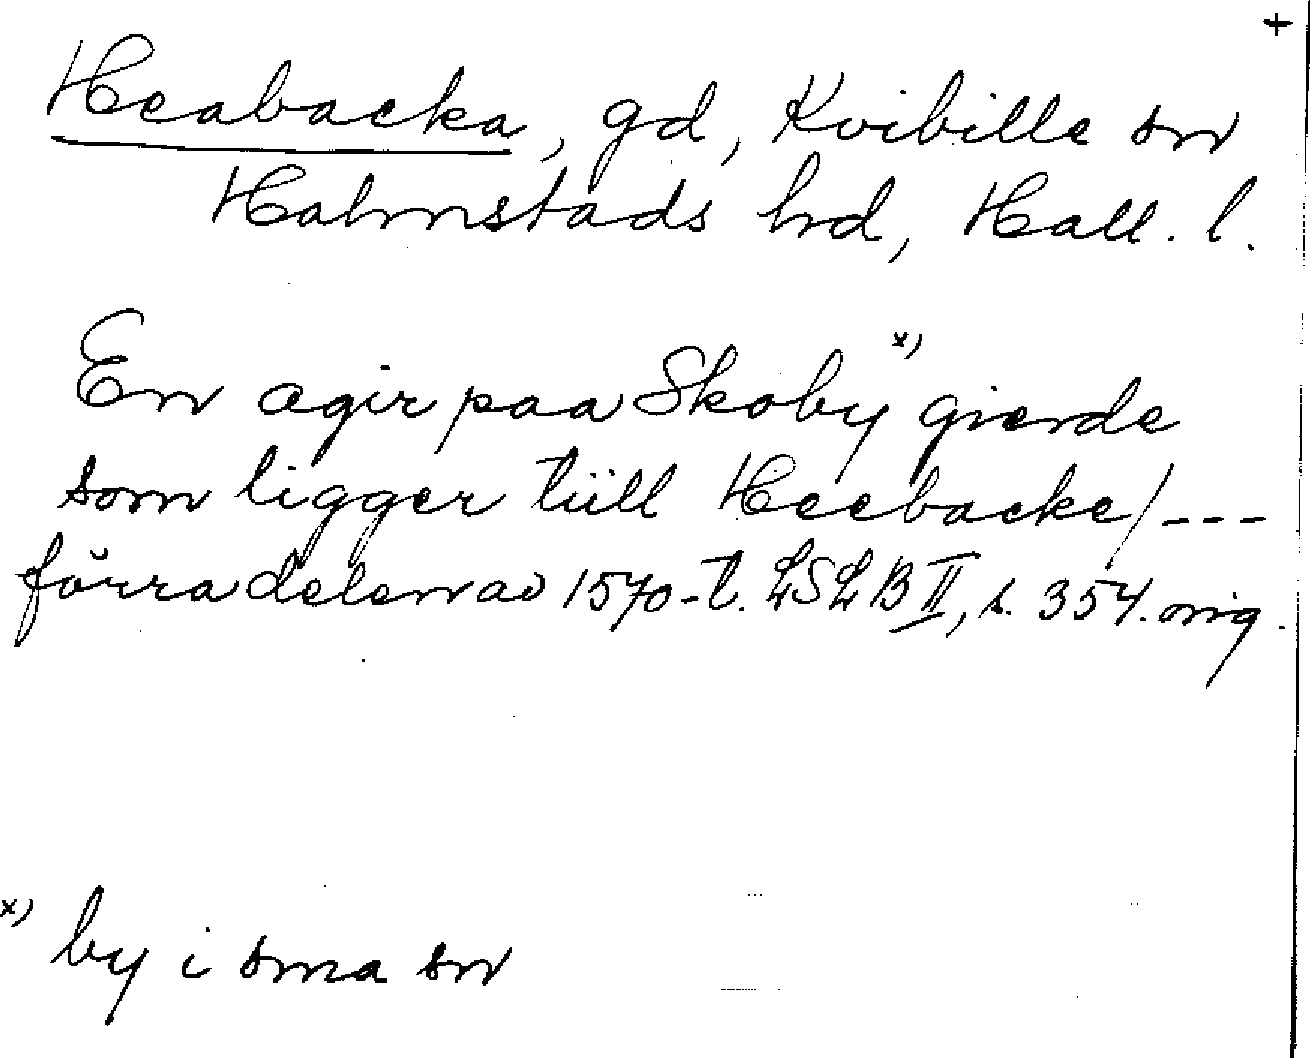 +
Heabacka, gd, Kvibille sn
Halmstads hrd, Hall. l.
En agir paa Skoby x) gierde
som ligger tiill Heebacke/---
förra delen av 1570-t. LSLB II, s. 354. orig.
x) by i sma sn